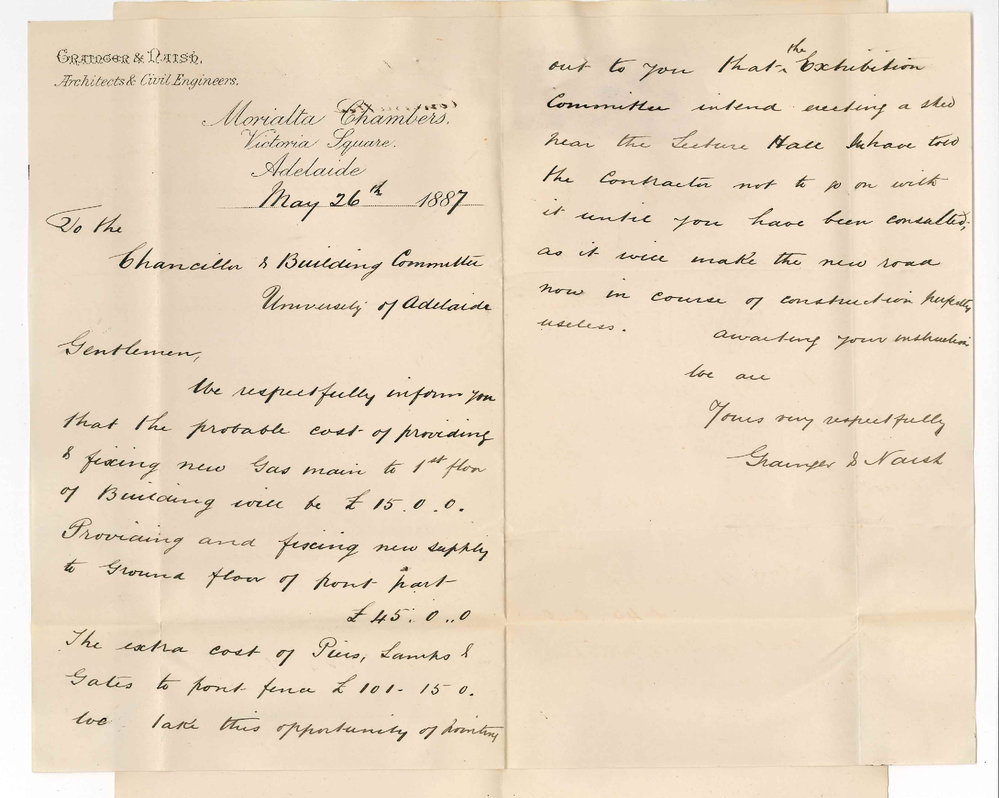 Grainger & Naish,
Architects & Civil Engineers.
Morialta Chambers,
Victoria Square.
Adelaide
May 26th 1887
To the
Chancellor & Building Committee
University of Adelaide
Gentlemen,
We respectfully inform you
that the probable cost of providing
& fixing new Gas main to 1st floor
of Building will be £ 15.0.0.
Providing and fixing new supply
to Ground floor of front part
£ 45.0..0
The extra cost of Piers, Lamps &
Gates to front fence £ 101-15 0.
We take this opportunity of pointing
out to you that the Exhibition
Committee intend erecting a shed
near the Lecture Hall We have told
the Contractor not to go on with
it until you have been consulted,
as it will make the new road
now in course of construction perfectly
useless. awaiting your instruction
We are
Yours very respectfully
Grainger & Naish